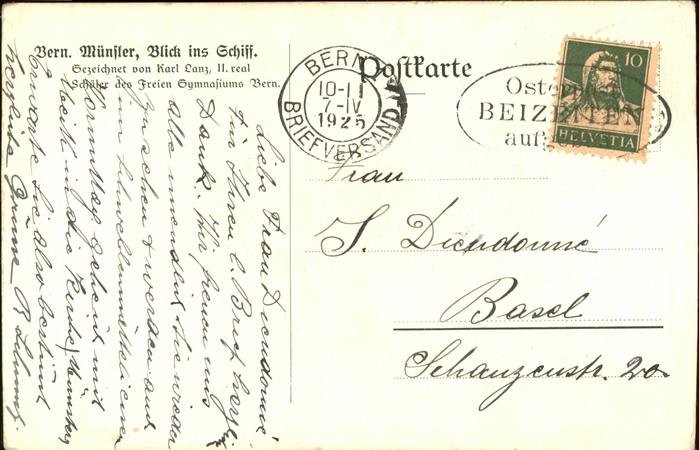 Bern. Münster, Blick ins Schiff.
Gezeichnet von Karl Lanz, II. real
Schüler des Freien Gymnasiums Bern.
Postkarte
BERN
10-11
7-IV
1925
BRIEFVERSAND
Oster
BEIZEITEN
auf
10
HELVETIA
Frau
S. Dieudonné
Basel
Schanzenstr. 20.
Liebe Frau Dieudonné
für Ihren l. Brief herzl.
Dank. Wir freuen uns
alle unendlich Sie wieder
zu sehen & werden am
um
Vormittag
in die Kirche, Münster
Erwarte Sie also bestimmt
herzliche Grüsse